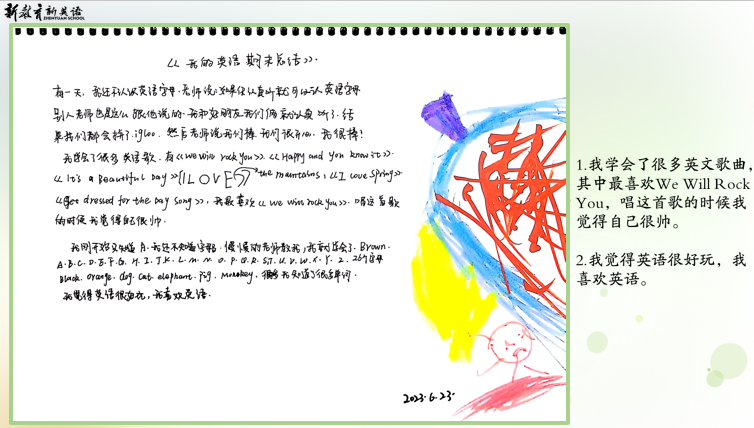 新教育新英语
ZHENYUAN SCHOOL
《我的英语期末总结》.
有一天,我还不认识英语字母.老师说:如果你认真听就可以认识英语字母
别人老师也是这么跟他说的.我和好朋友我们俩就认真听了.结
果我们都会拼了.igloo.然后老师说我们棒.我们很开心.我很棒!
我还学了很多英语歌.有《we will rock you》.《Happy and You know it》.
《It's a Beautiful Day》《I LOVE the mountains》,《I Love Spring》
《Get dressed for the Day song》,我最喜欢《we will rock you》.唱这首歌
的时候我觉得自己很帅.
我刚开始只知道A.我还不知道字母.慢慢的老师教我,我就学会了.Brown.
A.B.C.D.E.F.G.H.I.J.K.L.M.N.O.P.Q.R.S.T.U.V.W.X.Y.Z.26个字母
Black.orange.dog.Cat.elephant.Pig.monkey.我知道了很多单词.
我觉得英语很好玩,我喜欢英语.
2023.6.23.
1.我学会了很多英文歌曲,
其中最喜欢We Will Rock
You,唱这首歌的时候我
觉得自己很帅。
2.我觉得英语很好玩,我
喜欢英语。